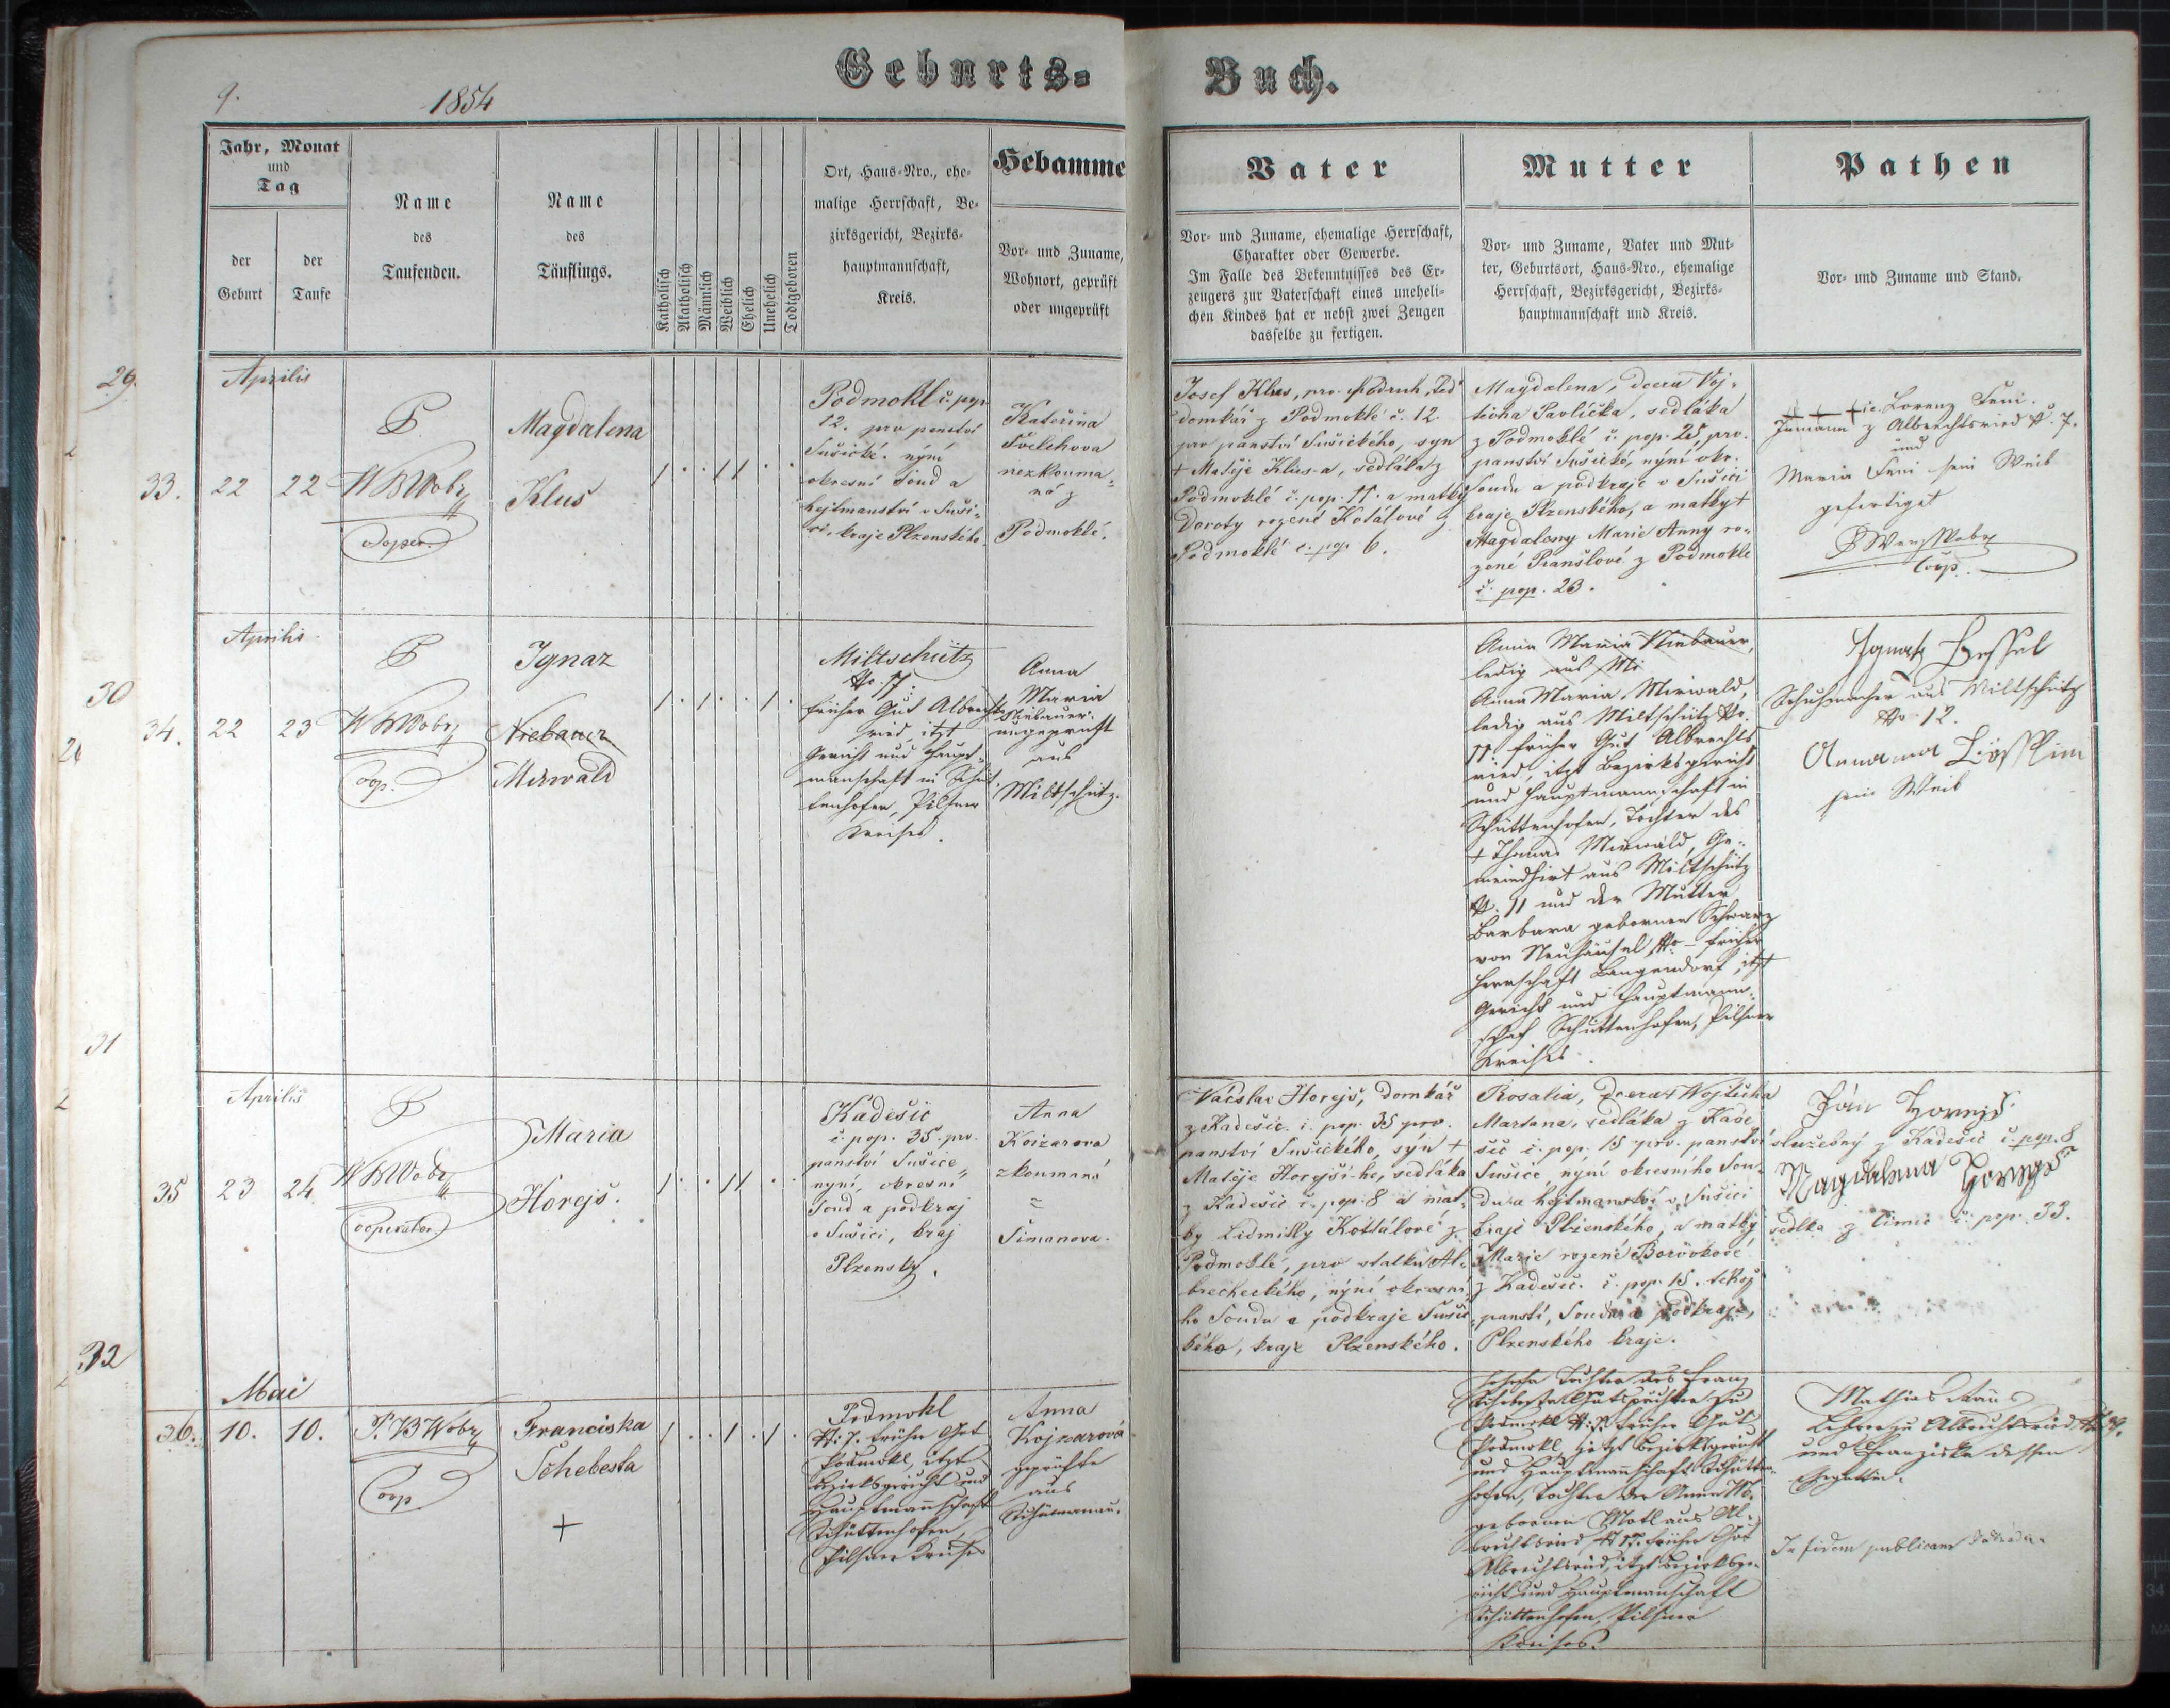 Geburts= Buch.
9. 1854
Jahr, Monat
und
Tag
der
Geburt
der
Taufe
Name
des
Taufenden.
Name
des
Täuflings.
Katholisch
Akatholisch
Männlich
Weiblich
Ehelich
Unehelich
Todtgeboren
Ort, Haus=Nro., ehe=
malige Herrschaft, Be=
zirksgericht, Bezirks=
hauptmannschaft,
Kreis.
Hebamme
Vor= und Zuname,
Wohnort, geprüft
oder ungeprüft
Vater
Vor= und Zuname, ehemalige Herrschaft,
Charakter oder Gewerbe.
Im Falle des Bekenntnisses des Er=
zeugers zur Vaterschaft eines uneheli=
chen Kindes hat er nebst zwei Zeugen
dasselbe zu fertigen.
Mutter
Vor= und Zuname, Vater und Mut=
ter, Geburtsort, Haus=Nro., ehemalige
Herrschaft, Bezirksgericht, Bezirks=
hauptmannschaft und Kreis.
Pathen
Vor= und Zuname und Stand.
29.
Aprilis
33. 22 22
P.
WBWobrz
Cooper.
Magdalena
Klus
Podmokl č. pop.
12. prv panství
Sušické. nýní
okresní soud a
hejtmanství v Suši=
ci, kraje Plzenského.
Kateřina
nezkouma=
ná z
Podmoklé.
Josef Klus, prv.
domkář z Podmoklé č. 12.
prv panství Sušického, syn
+ Matěje Klus-a, sedláka z
Podmoklé č. pop. 11. a matky
Doroty rozené Kotálové z
Podmoklé č. pop. 6.
Magdalena, dcera Voj=
těcha Pavlíčka, sedláka
z Podmoklé č. pop. 25, prv.
panství Sušické, nýní okr.
soudu a podkraje v Sušici
kraje Plzenského, a matky +
Magdaleny Marie Anny ro=
zené z Podmoklé
č. pop. 23.
+ + + ie. Lorenz
Inmann z Albrechtsried N. 7.
und
Maria sein Weib
gefertiget
Coop.
30
Aprilis
34. 22 23
P.
WBWobrz
Coop.
Ignaz
Niebauer
Mirwald
Miltschütz
No. 11.
früher Gut Albrechts
ried, itzt
Gericht und Haupt=
manschaft in Schüt=
tenhofen, Pilsner
Kreises.
Anna
Maria
Niebauer.
ungeprüft
aus
Miltschütz.
Anna Maria Niebauer,
ledig aus Mi
Anna Maria Mirwald,
ledig aus Miltschütz No.
11 früher Gut Albrechts
ried, itzt Bezirksgericht
und Hauptmannschaft in
Schüttenhofen, Tochter des
+ Thomas Mirwald, Ge=
meindhirt aus Miltschütz
N. 11 und der Mutter
Barbara gebornen Schwarz
von Neuhäusel No – früher
Herrschaft Langendorf, itzt
Gericht und Hauptmann=
schaft Schüttenhofen, Pilsner
Kreises.
Ignatz
Schuhmacher aus Miltschütz
No 12.
sein Weib
31
Aprilis
35 23 24
P.
WBWobrz
Cooperator.
Maria
Horejš.
Kadešic
č. pop. 35. prv.
panství Sušice,
nyní, okresní
soud a podkraj
v Sušici, kraj
Plzenský.
Anna
Koizarova
zkoumaná
z
Šimanova.
Václav Horejš, domkář
z Kadešic č. pop. 35 prv.
panství Sušického, sýn +
Matěje Horejší-ho, sedláka
z Kadešic č. pop. 8 a mat=
ky Lidmilly Kottálové z
Podmoklé, prv statku Al=
brechtského, nýní okresní=
ho soudu a podkraje Sušic=
kého, kraje Plzenského.
Rosalia, dcera + Wojtěcha
Martana, sedláka z Kade=
šic č. pop. 15 prv. panství
Sušice, nýní okresního sou=
du a hejtmanství v Sušici
kraje Plzenského, a matky
Marie rozené Borovkové
z Kadešic č. pop. 15. téhož
panstí, soudu a podkraje,
Plzenského kraje.
Ján Horejš
služebný z Kadešic č. pop. 8
Magdalena Horejš
sedlka z Čimic č. pop. 33.
32
Mai
36. 10. 10.
P. WBWobrz
Coop
Franciska
Schebesta
+
Podmokl
N. 7. früher Gut
Podmokl, itzt
Bezirksgericht und
Hauptmannschaft
Schüttenhofen,
Pilsner Kreises
Anna
Kojzarová
geprüfte
aus
Schimanau.
Josefa Tochter des Franz
Schebesta zu
Podmokl N. 7. früher Gut
Podmokl, jetzt Bezirksgericht
und Hauptmannschaft Schütten=
hofen, Tochter der Anna
gebornen Motl aus Al=
brechtsried N 17. früher Gut
Albrechtsried, itzt Bezirksge=
richt und Hauptmanschaft
Schüttenhofen, Pilsner
Kreises.
Mathias
Lehrer zu Albrechtsried
und Franziska dessen
Gegattin.
In fidem publicam